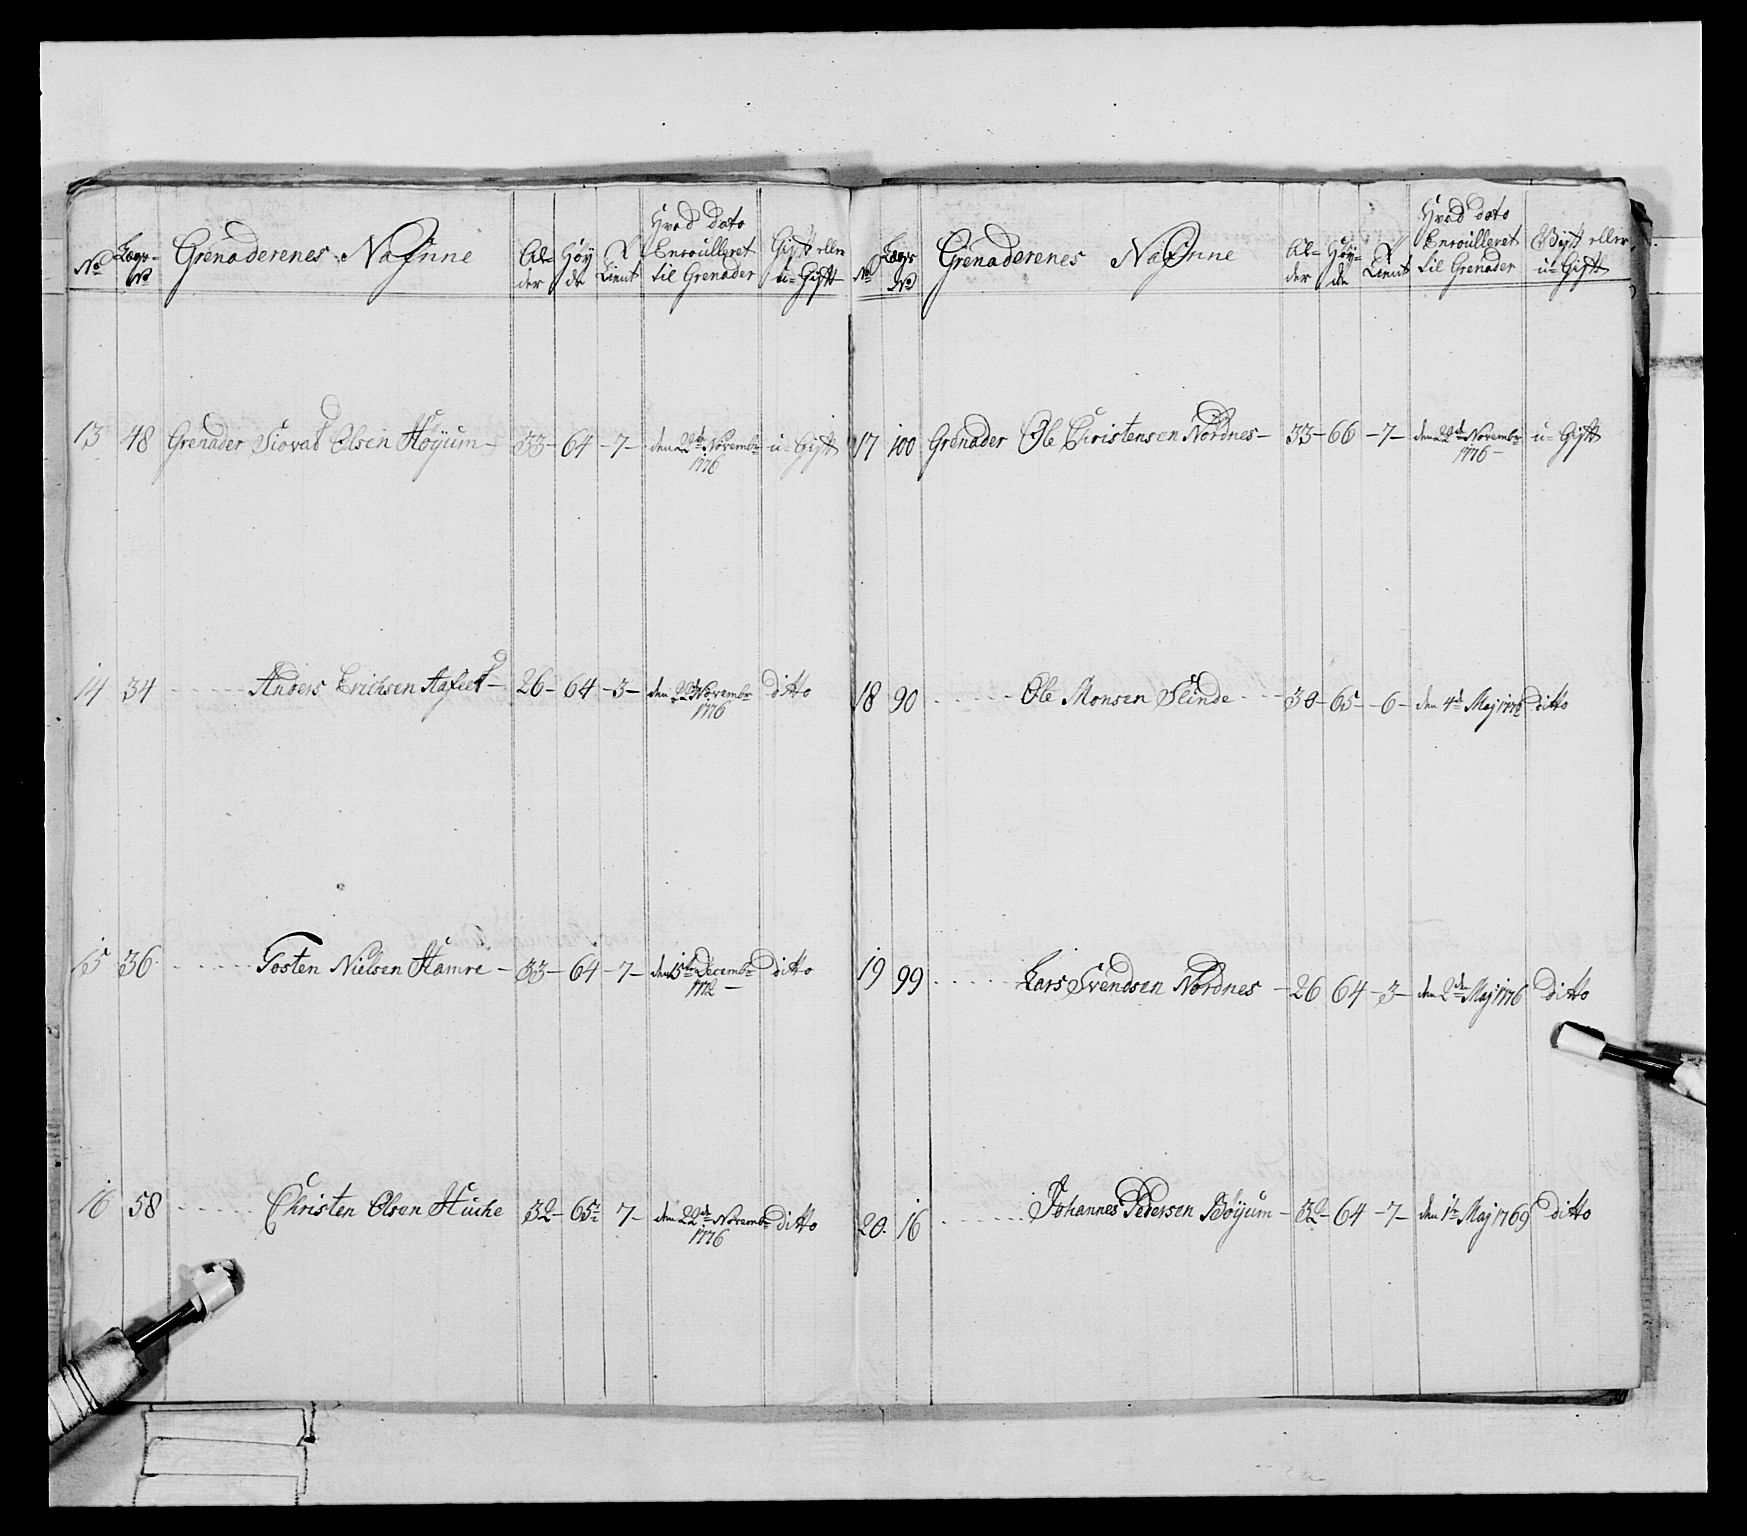 No Lægs No Grenaderenes Nafnne Al= der Höy de Tient Hvad dato Enroulleret til Grenader Gift eller u=Gift
13 48 Grenader Siovat Olsen Höyum 33 64 7 den 22de Novembr 1776 u=Gift
14 34 Anders Erichsen Aafeet 26 64 3 den 22d Novembr 1776 ditto
15 36 Tosten Nielsen Hamre 33 64 7 den 15de Decembr 1772 ditto
16 58 Christen Olsen Huche 32 65 7 den 22de Novembr 1776 ditto
No Lægs No Grenaderenes Nafnne Al= der Höy= de Tient Hvad dato Enroulleret til Grenader Gift eller u=Gift
17 100 Grenader Ole Christensen Nordnes 33 66 7 den 22de Novembr 1776 u=Gift
18 90 Ole Monsen Slinde 30 65 6 den 4de Maj ditto
19 99 Lars Svendsen Nordnes 26 64 3 den 2den Maj 1776 ditto
20. 16 Johannes Pedersen Böyum 32 64 7 den 1te Maj 1769 ditto